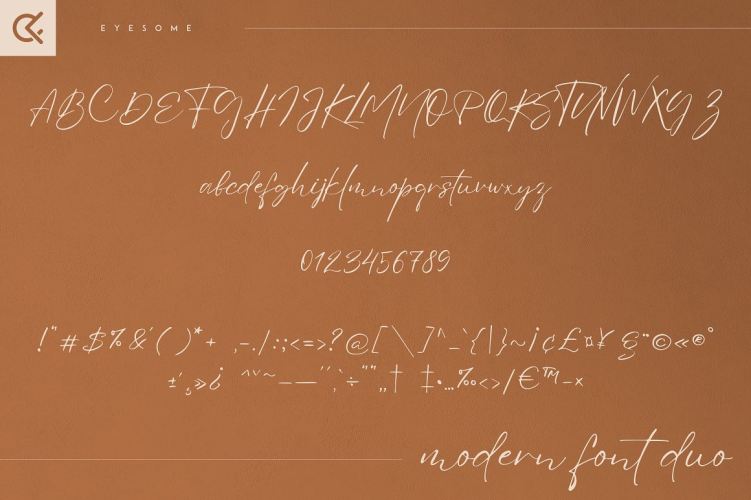 EYESOME
ABCDEFGHIJKLMNOPQRSTUVWXYZ
abcdefghijklmnopqrstuvwxyz
0123456789
!"#$%&'()*+ ,-./:;<=>?@[\]^_`{|}~¡¢£¤¥ §¨©«®°
±´¸»¿ ˆˇ˜–—‘’‚`÷“”„† ‡•…‰‹›/€™−×
modern font duo